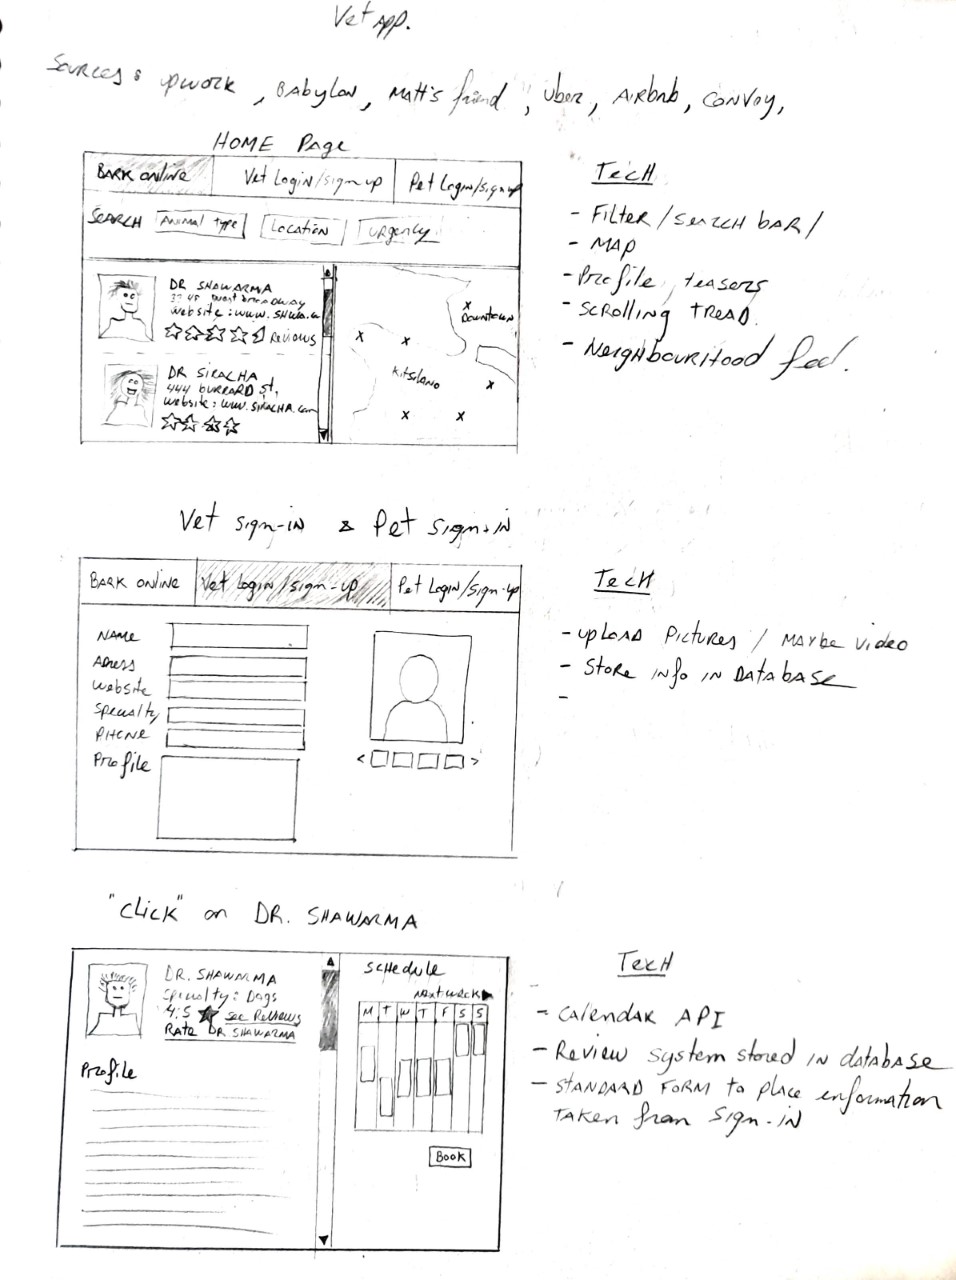 Vet App.
Sources: upwork, Babylon, Matt's friend, Uber, Airbnb, Convoy,
HOME Page
BARK ONLINE
Vet Login/sign up
Pet Login/sign up
SEARCH
ANIMAL type
LOCATION
urgency
DR SHAWARMA
west broadway
website: www.Shwa.co
Reviews
DR SIRACHA
444 BURRARD St,
website: www.SIRACHA.com
DOWNTOWN
Kitsilano
TecH
- Filter/search bar/
- MAP
- Profile, teasers
- SCROLLING TREAD.
- NeighbouRHood feel.
Vet sign-in & Pet sign-in
BARK ONLINE
Vet Login/sign-up
Pet Login/sign-up
NAME
Adress
website
Specialty
PHONE
Profile
< >
TecH
- upload Pictures / Maybe video
- Store info in Database
-
"Click" on DR. SHAWARMA
DR. SHAWARMA
Speciality: Dogs
4.5 ★ See Reviews
Rate DR SHAWARMA
Profile
SCHedule
Next week ▶
M T W T F S S
Book
TecH
- Calendar API
- Review system stored in database
- STANDARD FORM to place information
TAKEN from Sign-in